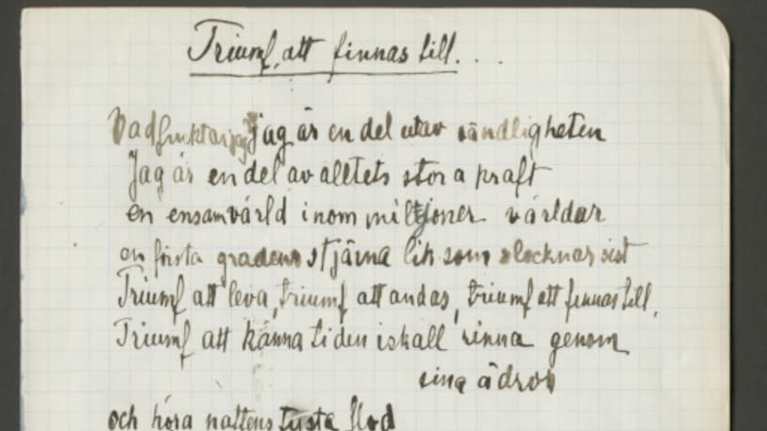 Triumf att finnas till...
Vad fruktar jag? Jag är en del utav oändligheten
Jag är en del av alltets stora kraft
en ensam värld inom miljoner världar
en första gradens stjärna lik som slocknar sist
Triumf att leva, triumf att andas, triumf att finnas till.
Triumf att känna tiden iskall rinna genom
sina ådror
och höra nattens tysta flod